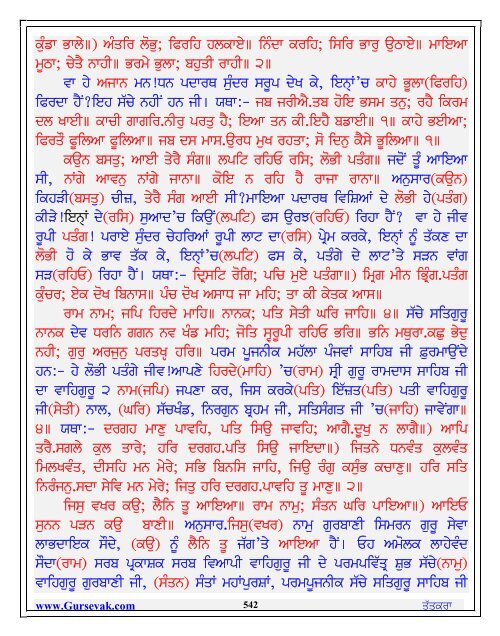 ਕੁੰਡਾ ਭਾਲੇ॥) ਅੰਤਰਿ ਲੋਭੁ; ਫਿਰਹਿ ਹਲਕਾਏ॥ ਨਿੰਦਾ ਕਰਹਿ; ਸਿਰਿ ਭਾਰੁ ਉਠਾਏ॥ ਮਾਇਆ
ਮੂਠਾ; ਚੇਤੈ ਨਾਹੀ॥ ਭਰਮੇ ਭੁਲਾ; ਬਹੁਤੀ ਰਾਹੀ॥ ੨॥
ਵਾ ਹੇ ਅਜਾਨ ਮਨ!ਧਨ ਪਦਾਰਥ ਸੁੰਦਰ ਸਰੂਪ ਦੇਖ ਕੇ, ਇਨ੍ਹਾਂ'ਚ ਕਾਹੇ ਭੂਲਾ(ਫਿਰਹਿ)
ਫਿਰਦਾ ਹੈਂ?ਇਹ ਸੱਚੇ ਨਹੀਂ ਹਨ ਜੀ। ਯਥਾ:- ਜਬ ਜਰੀਐ.ਤਬ ਹੋਇ ਭਸਮ ਤਨੁ; ਰਹੈ ਕਿਰਮ
ਦਲ ਖਾਈ॥ ਕਾਚੀ ਗਾਗਰਿ.ਨੀਰੁ ਪਰਤੁ ਹੈ; ਇਆ ਤਨ ਕੀ.ਇਹੈ ਬਡਾਈ॥ ੧॥ ਕਾਹੇ ਭਈਆ;
ਫਿਰਤੌ ਫੂਲਿਆ ਫੂਲਿਆ॥ ਜਬ ਦਸ ਮਾਸ.ਉਰਧ ਮੁਖ ਰਹਤਾ; ਸੋ ਦਿਨੁ ਕੈਸੇ ਭੂਲਿਆ॥ ੧॥
ਕਉਨ ਬਸਤੁ; ਆਈ ਤੇਰੈ ਸੰਗ॥ ਲਪਟਿ ਰਹਿਓ ਰਸਿ; ਲੋਭੀ ਪਤੰਗ॥ ਜਦੋਂ ਤੂੰ ਆਇਆ
ਸੀ, ਨਾਂਗੇ ਆਵਨੁ ਨਾਂਗੇ ਜਾਨਾ॥ ਕੋਇ ਨ ਰਹਿ ਹੈ ਰਾਜਾ ਰਾਨਾ॥ ਅਨੁਸਾਰ(ਕਉਨ)
ਕਿਹੜੀ(ਬਸਤੁ) ਚੀਜ਼, ਤੇਰੈ ਸੰਗ ਆਈ ਸੀ?ਮਾਇਆ ਪਦਾਰਥ ਵਿਸ਼ਿਆਂ ਦੇ ਲੋਭੀ ਹੇ(ਪਤੰਗ)
ਕੀੜੇ!ਇਨ੍ਹਾਂ ਦੇ(ਰਸਿ) ਸੁਆਦ'ਚ ਕਿਉਂ(ਲਪਟਿ) ਫਸ ਉਰਝ(ਰਹਿਓ) ਰਿਹਾ ਹੈਂ? ਵਾ ਹੇ ਜੀਵ
ਰੂਪੀ ਪਤੰਗ! ਪਰਾਏ ਸੁੰਦਰ ਚੇਹਰਿਆਂ ਰੂਪੀ ਲਾਟ ਦਾ(ਰਸਿ) ਪ੍ਰੇਮ ਕਰਕੇ, ਇਨ੍ਹਾਂ ਨੂੰ ਤੱਕਣ ਦਾ
ਲੋਭੀ ਹੋ ਕੇ ਭਾਵ ਤੱਕ ਕੇ, ਇਨ੍ਹਾਂ'ਚ(ਲਪਟਿ) ਫਸ ਕੇ, ਪਤੰਗੇ ਦੇ ਲਾਟ'ਤੇ ਸੜਨ ਵਾਂਗ
ਸੜ(ਰਹਿਓ) ਰਿਹਾ ਹੈਂ। ਯਥਾ:- ਦ੍ਰਿਸਟਿ ਰੋਗਿ; ਪਚਿ ਮੁਏ ਪਤੰਗਾ॥) ਮ੍ਰਿਗ ਮੀਨ ਭ੍ਰਿੰਗ.ਪਤੰਗ
ਕੁੰਚਰ; ਏਕ ਦੋਖ ਬਿਨਾਸ॥ ਪੰਚ ਦੋਖ ਅਸਾਧ ਜਾ ਮਹਿ; ਤਾ ਕੀ ਕੇਤਕ ਆਸ॥
ਰਾਮ ਨਾਮੁ; ਜਪਿ ਹਿਰਦੇ ਮਾਹਿ॥ ਨਾਨਕ; ਪਤਿ ਸੇਤੀ ਘਰਿ ਜਾਹਿ॥ ੪॥ ਸੱਚੇ ਸਤਿਗੁਰੂ
ਨਾਨਕ ਦੇਵ ਧਰਨਿ ਗਗਨ ਨਵ ਖੰਡ ਮਹਿ; ਜੋਤਿ ਸ੍ਵਰੂਪੀ ਰਹਿਓ ਭਰਿ॥ ਭਨਿ ਮਥੁਰਾ.ਕਛੁ ਭੇਦੁ
ਨਹੀ; ਗੁਰੁ ਅਰਜੁਨੁ ਪਰਤਖ੍ਯ ਹਰਿ॥ ਪਰਮ ਪੂਜਨੀਕ ਮਹੱਲਾ ਪੰਜਵਾਂ ਸਾਹਿਬ ਜੀ ਫ਼ੁਰਮਾਉਂਦੇ
ਹਨ:- ਹੇ ਲੋਭੀ ਪਤੰਗੇ ਜੀਵ!ਆਪਣੇ ਹਿਰਦੇ(ਮਾਹਿ) 'ਚ(ਰਾਮ) ਸ੍ਰੀ ਗੁਰੂ ਰਾਮਦਾਸ ਸਾਹਿਬ ਜੀ
ਦਾ ਵਾਹਿਗੁਰੂ ੨ ਨਾਮ(ਜਪਿ) ਜਪਣਾ ਕਰ, ਜਿਸ ਕਰਕੇ(ਪਤਿ) ਇੱਜ਼ਤ(ਪਤਿ) ਪਤੀ ਵਾਹਿਗੁਰੂ
ਜੀ(ਸੇਤੀ) ਨਾਲ, (ਘਰਿ) ਸੱਚਖੰਡ, ਨਿਰਗੁਨ ਬ੍ਰਹਮ ਜੀ, ਸਤਿਸੰਗਤ ਜੀ 'ਚ(ਜਾਹਿ) ਜਾਵੇਂਗਾ॥
੪॥ ਯਥਾ:- ਦਰਗਹ ਮਾਣੁ ਪਾਵਹਿ, ਪਤਿ ਸਿਉ ਜਾਵਹਿ; ਆਗੈ.ਦੂਖੁ ਨ ਲਾਗੈ॥) ਆਪਿ
ਤਰੈ.ਸਗਲੇ ਕੁਲ ਤਾਰੇ; ਹਰਿ ਦਰਗਹ.ਪਤਿ ਸਿਉ ਜਾਇਦਾ॥) ਜਿਤਨੇ ਧਨਵੰਤ ਕੁਲਵੰਤ
ਮਿਲਖਵੰਤ, ਦੀਸਹਿ ਮਨ ਮੇਰੇ; ਸਭਿ ਬਿਨਸਿ ਜਾਹਿ, ਜਿਉ ਰੰਗੁ ਕਸੁੰਭ ਕਚਾਣੁ॥ ਹਰਿ ਸਤਿ
ਨਿਰੰਜਨੁ.ਸਦਾ ਸੇਵਿ ਮਨ ਮੇਰੇ; ਜਿਤੁ ਹਰਿ ਦਰਗਹ.ਪਾਵਹਿ ਤੂ ਮਾਣੁ॥ ੨॥
ਜਿਸੁ ਵਖਰ ਕਉ; ਲੈਨਿ ਤੂ ਆਇਆ॥ ਰਾਮ ਨਾਮੁ; ਸੰਤਨ ਘਰਿ ਪਾਇਆ॥) ਆਇਓ
ਸੁਨਨ ਪੜਨ ਕਉ ਬਾਣੀ॥ ਅਨੁਸਾਰ.ਜਿਸੁ(ਵਖਰ) ਨਾਮੁ ਗੁਰਬਾਣੀ ਸਿਮਰਨ ਗੁਰੂ ਸੇਵਾ
ਲਾਭਦਾਇਕ ਸੌਦੇ, (ਕਉ) ਨੂੰ ਲੈਨਿ ਤੂੰ ਜੱਗ'ਤੇ ਆਇਆ ਹੈਂ। ਓਹ ਅਮੋਲਕ ਲਾਹੇਵੰਦ
ਸੌਦਾ(ਰਾਮ) ਸਰਬ ਪ੍ਰਕਾਸ਼ਕ ਸਰਬ ਵਿਆਪੀ ਵਾਹਿਗੁਰੂ ਜੀ ਦੇ ਪਰਮਪਵਿੱਤ੍ਰ ਸ਼ੁਭ ਸੱਚੇ(ਨਾਮੁ)
ਵਾਹਿਗੁਰੂ ਗੁਰਬਾਣੀ ਜੀ, (ਸੰਤਨ) ਸੰਤਾਂ ਮਹਾਂਪੁਰਸ਼ਾਂ, ਪਰਮਪੂਜਨੀਕ ਸੱਚੇ ਸਤਿਗੁਰੂ ਸਾਹਿਬ ਜੀ
www.Gursevak.com 542 ਤੱਤਕਰਾ